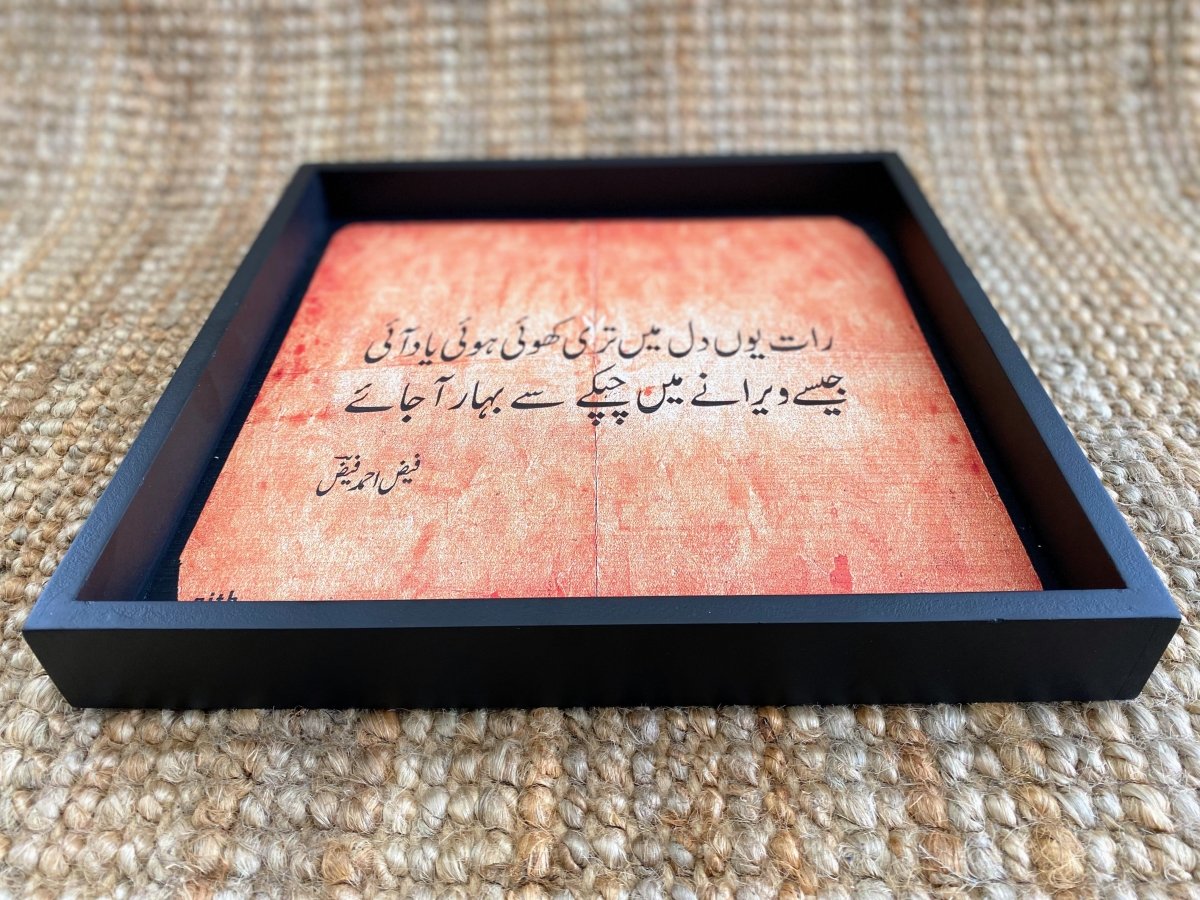 رات یوں دل میں تری کھوئی ہوئی یاد آئی
جیسے ویرانے میں چپکے سے بہار آ جائے
فیض احمد فیضؔ